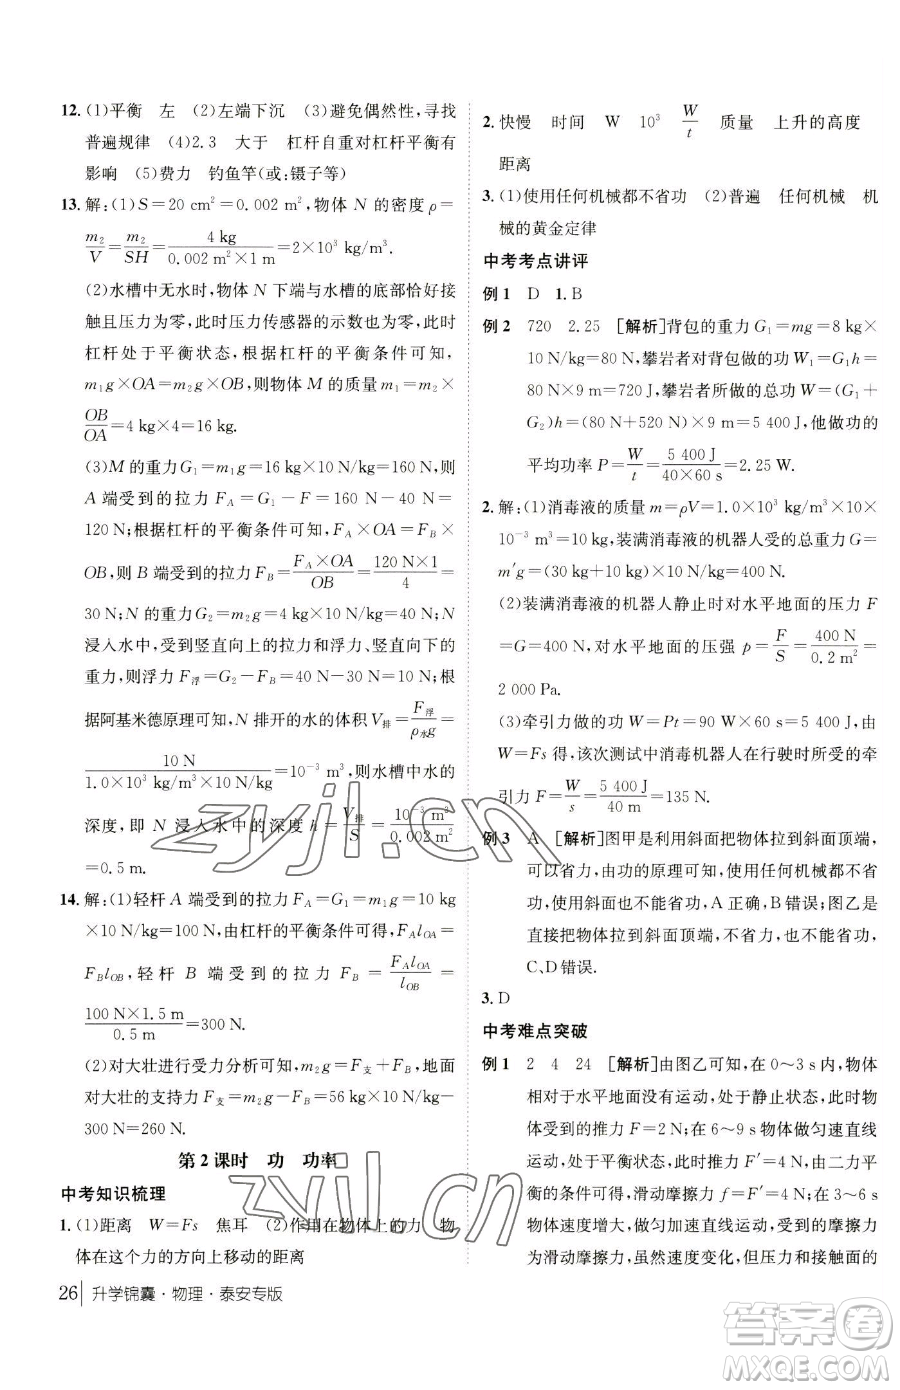 12. (1)平衡　左　(2)左端下沉　(3)避免偶然性,寻找
普遍规律　(4)2.3　大于　杠杆自重对杠杆平衡有
影响　(5)费力　钓鱼竿(或:镊子等)
13. 解:(1)S=20 cm²=0.002 m²,物体 N 的密度 ρ=
m₂/V=m₂/SH=4 kg/(0.002 m²×1 m)=2×10³ kg/m³.
(2)水槽中无水时,物体 N 下端与水槽的底部恰好接
触且压力为零,此时压力传感器的示数也为零,此时
杠杆处于平衡状态,根据杠杆的平衡条件可知,
m₁g×OA=m₂g×OB,则物体 M 的质量 m₁=m₂×
OB/OA=4 kg×4=16 kg.
(3)M 的重力 G₁=m₁g=16 kg×10 N/kg=160 N,则
A 端受到的拉力 F_A=G₁-F=160 N-40 N=
120 N;根据杠杆的平衡条件可知,F_A×OA=F_B×
OB,则 B 端受到的拉力 F_B=F_A×OA/OB=120 N×1/4=
30 N;N 的重力 G₂=m₂g=4 kg×10 N/kg=40 N;N
浸入水中,受到竖直向上的拉力和浮力、竖直向下的
重力,此时浮力 F浮=G₂-F_B=40 N-30 N=10 N;根
据阿基米德原理可知,N 排开的水的体积 V排=F浮/ρ水g=
10 N/(1.0×10³ kg/m³×10 N/kg)=10⁻³ m³,此时水槽中水的
深度,即 N 浸入水中的深度 h=V排/S=10⁻³ m³/0.002 m²
=0.5 m.
14. 解:(1)轻杆 A 端受到的拉力 F_A=G₁=m₁g=10 kg
×10 N/kg=100 N,由杠杆的平衡条件可得,F_Al_OA=
F_Bl_OB,轻杆 B 端受到的拉力 F_B=F_Al_OA/l_OB=
100 N×1.5 m/0.5 m=300 N.
(2)对大壮进行受力分析可知,m₂g=F支+F_B,地面
对大壮的支持力 F支=m₂g-F_B=56 kg×10 N/kg-
300 N=260 N.
第 2 课时　功　功率
中考知识梳理
1. (1)距离　W=Fs　焦耳　(2)作用在物体上的力　物
体在这个力的方向上移动的距离
26 升学锦囊·物理·泰安专版
2. 快慢　时间　W　10³　W/t　质量　上升的高度
距离
3. (1)使用任何机械都不省功　(2)普遍　任何机械　机
械的黄金定律
中考考点讲评
例 1　D　1. B
例 2　720　2.25　[解析]背包的重力 G₁=mg=8 kg×
10 N/kg=80 N,攀岩者对背包做的功 W₁=G₁h=
80 N×9 m=720 J,攀岩者所做的总功 W=(G₁+
G₂)h=(80 N+520 N)×9 m=5 400 J,他做功的
平均功率 P=W/t=5 400 J/(40×60 s)=2.25 W.
2. 解:(1)消毒液的质量 m=ρV=1.0×10³ kg/m³×10×
10⁻³ m³=10 kg,装满消毒液的机器人受的总重力 G=
m′g=(30 kg+10 kg)×10 N/kg=400 N.
(2)装满消毒液的机器人静止时对水平地面的压力 F
=G=400 N,对水平地面的压强 p=F/S=400 N/0.2 m²=
2 000 Pa.
(3)牵引力做的功 W=Pt=90 W×60 s=5 400 J,由
W=Fs 得,该次测试中消毒机器人在行驶时所受的牵
引力 F=W/s=5 400 J/40 m=135 N.
例 3　A　[解析]图甲是利用斜面把物体拉到斜面顶端,
可以省力,由功的原理可知,使用任何机械都不省
功,使用斜面也不能省功,A 正确,B 错误;图乙是
直接把物体拉到斜面顶端,不省力,也不能省功,
C、D 错误.
3. D
中考难点突破
例 1　2　4　24　[解析]由图乙可知,在 0～3 s 内,物体
相对于水平地面没有运动,处于静止状态,此时物
体受到的推力 F=2 N;在 6～9 s 内物体做匀速直线
运动,处于平衡状态,此时推力 F′=4 N,由二力平
衡的条件可得,滑动摩擦力 f=F′=4 N;在 3～6 s 内,
物体速度增大,做匀加速直线运动,受到的摩擦力
为滑动摩擦力,虽然速度变化,但压力和接触面的
zyjl.cn
zyjl.cn
答案圈
MXQE.COM